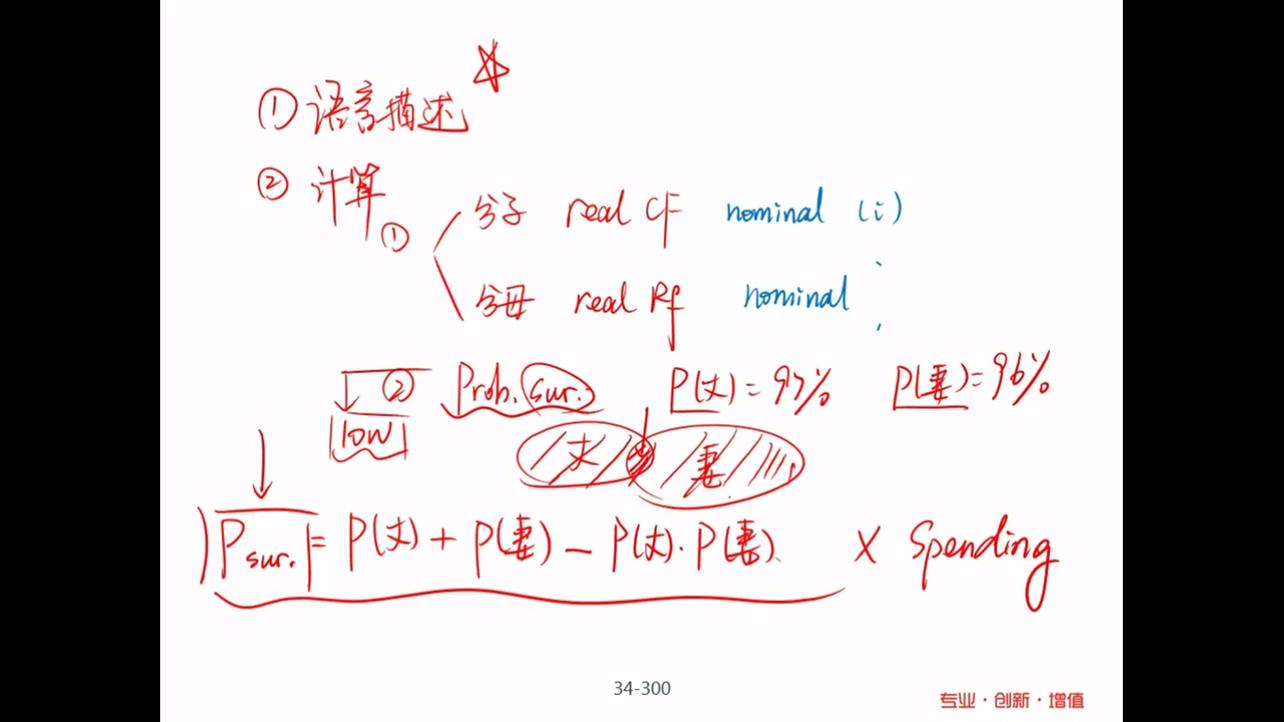 ① 语言描述
② 计算
① 分子 real CF nominal (i)
分母 real Rf nominal
② Prob. sur. P(丈) = 97% P(妻) = 96%
low
丈 妻
P sur. = P(丈) + P(妻) - P(丈) · P(妻). × Spending
34-300
专业·创新·增值